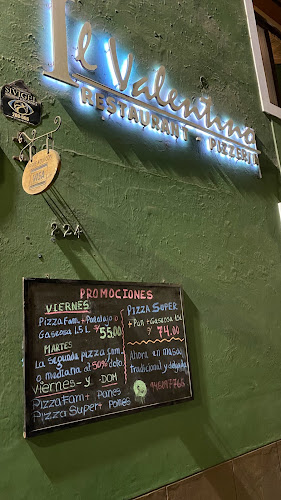 il Valentino
RESTAURANT - PIZZERIA
224
PROMOCIONES
VIERNES
Pizza Fam. + Panalajo o
Gaseosa 1.5 L. S/ 55.00
MARTES
La segunda pizza fam
o mediana al 50% dcto.
Viernes - y - DOM
Pizza Fam + Panes
Pizza Super + Panes
Pizza Super
+ Pan + Gaseosa 1.5l
S/ 74.00
Ahora en masa
Tradicional y delgada